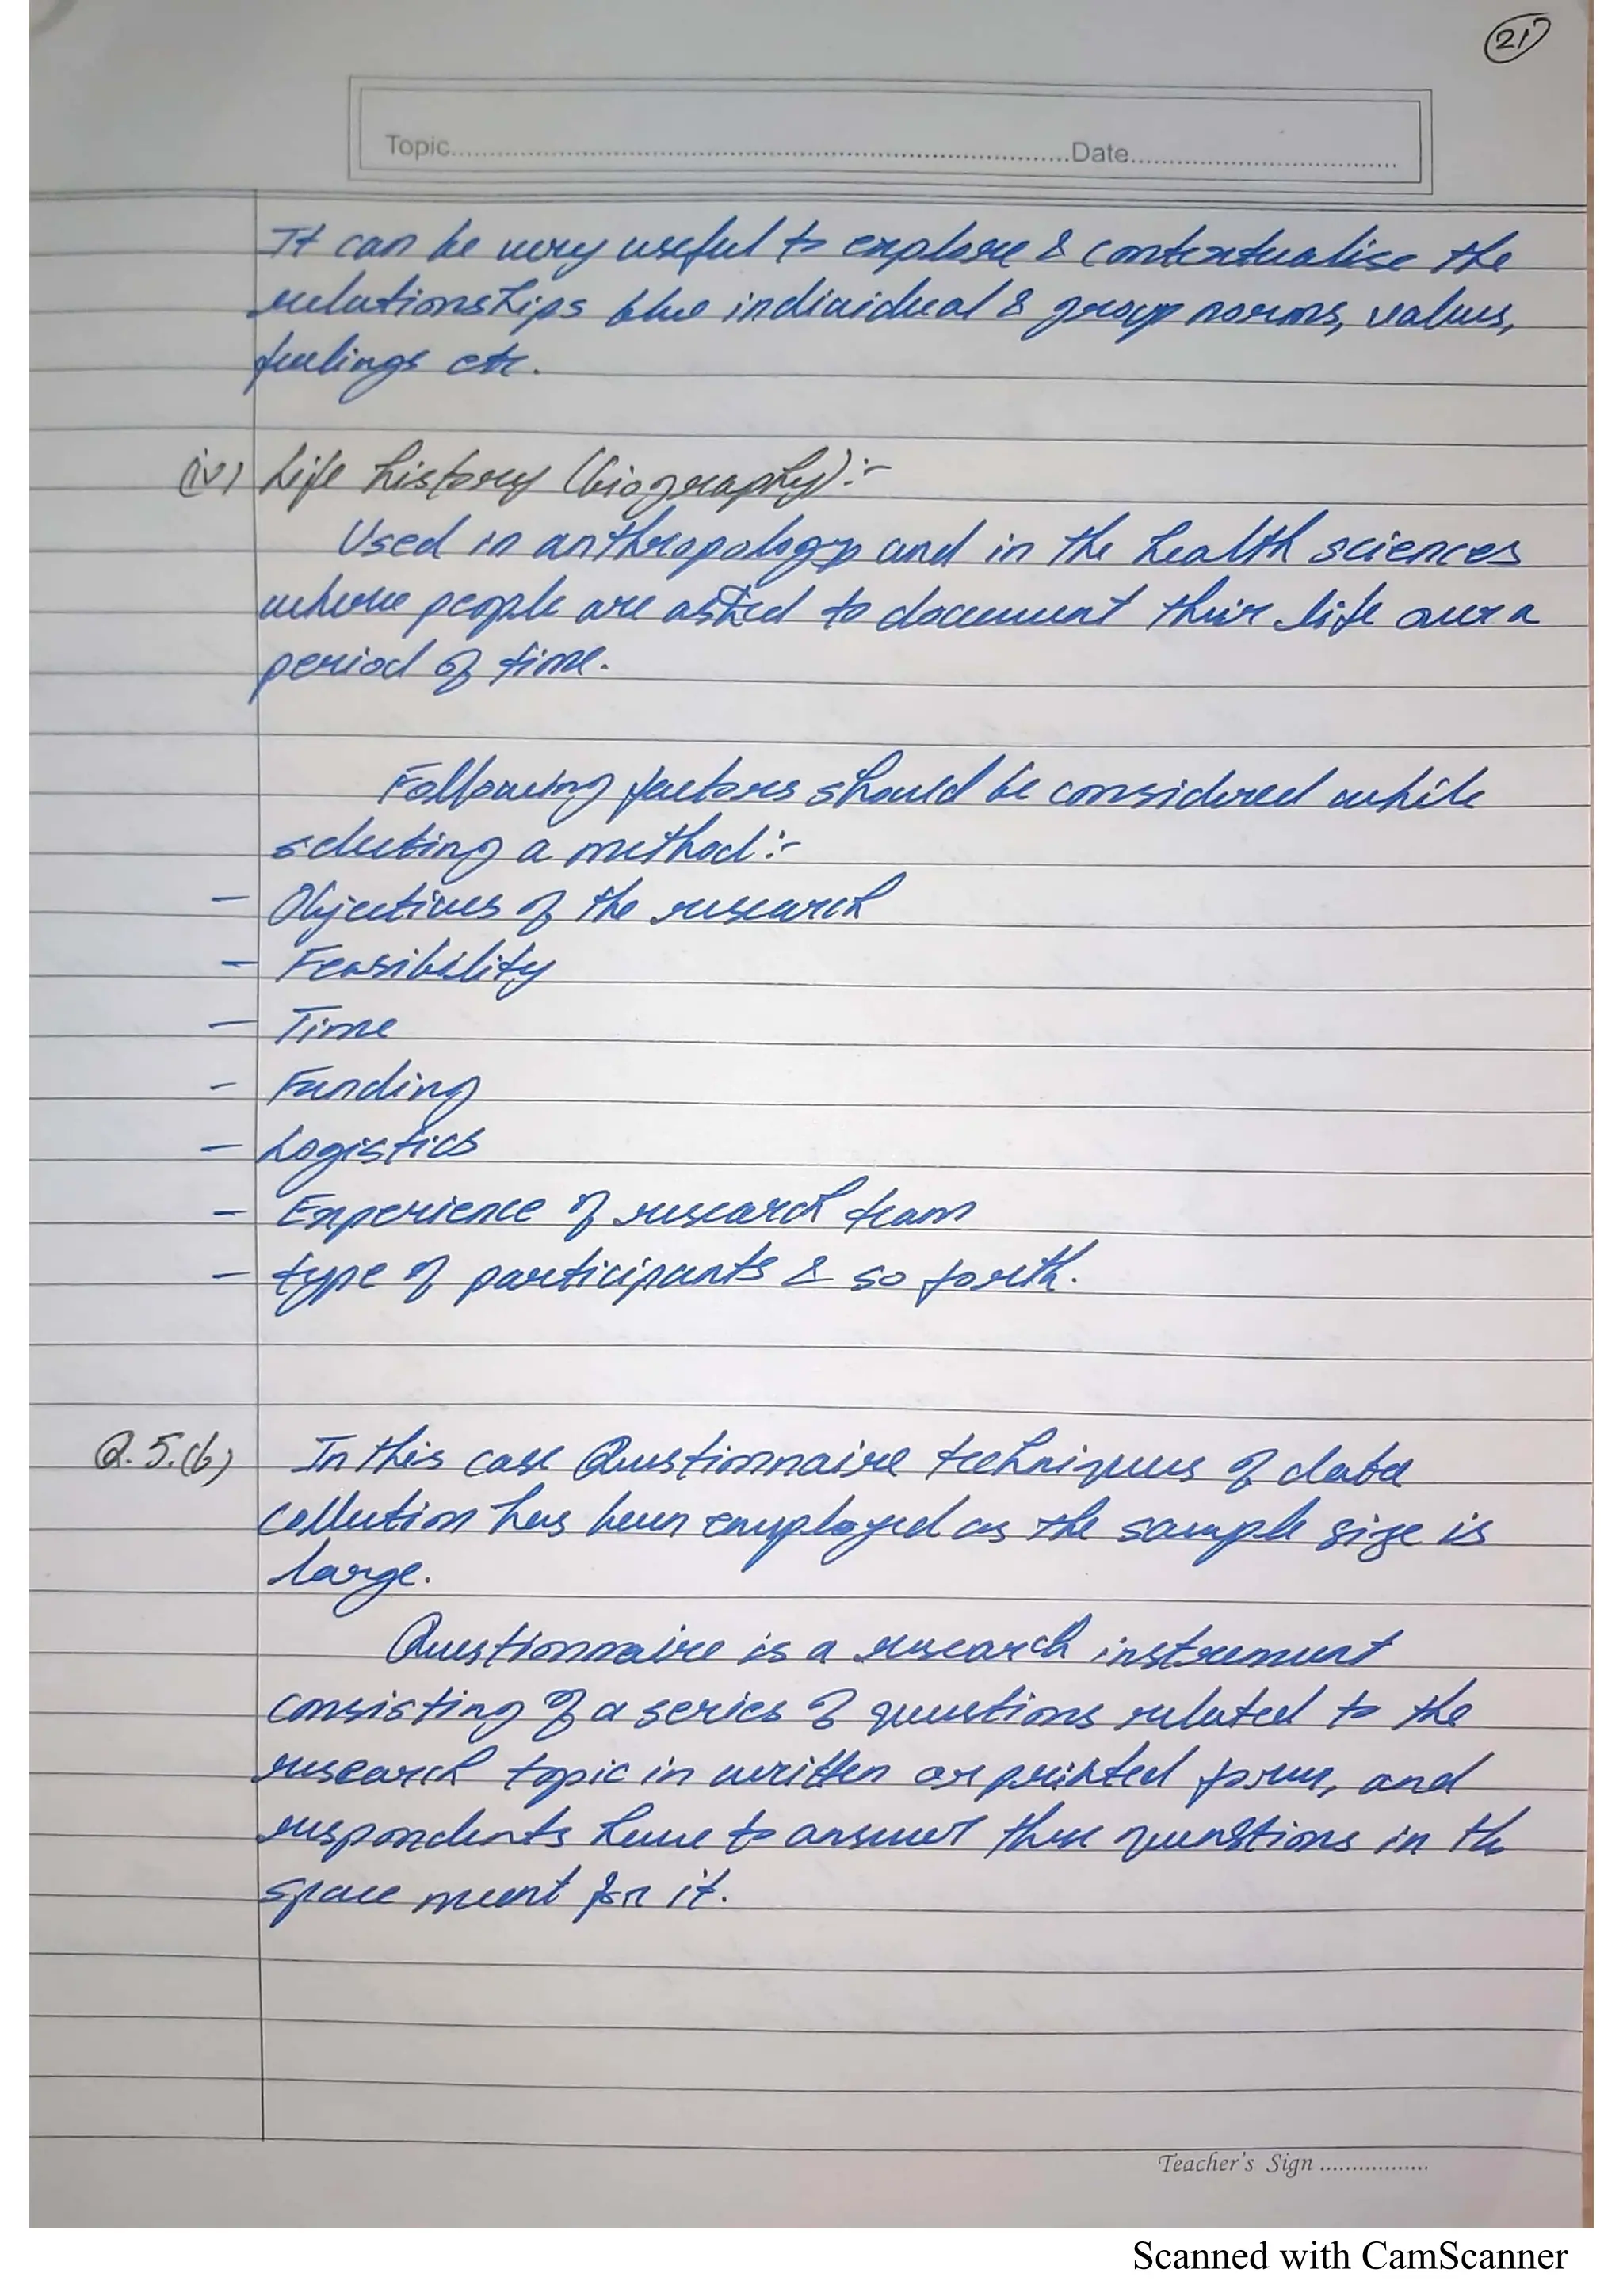 21
Topic..........Date..........
It can be very useful to explore & contextualise the
relationships b/w individual & group norms, values,
feelings etc.
(iv) Life history (biography):-
Used in anthropology and in the health sciences
where people are asked to document their life over a
period of time.
Following factors should be considered while
selecting a method:-
- Objectives of the research
- Feasibility
- Time
- Funding
- Logistics
- Experience of research team
- type of participants & so forth.
Q.5.(b) In this case Questionnaire techniques of data
collection has been employed as the sample size is
large.
Questionnaire is a research instrument
consisting of a series of questions related to the
research topic in written or printed form, and
respondents have to answer these questions in the
space meant for it.
Teacher's Sign..........
Scanned with CamScanner